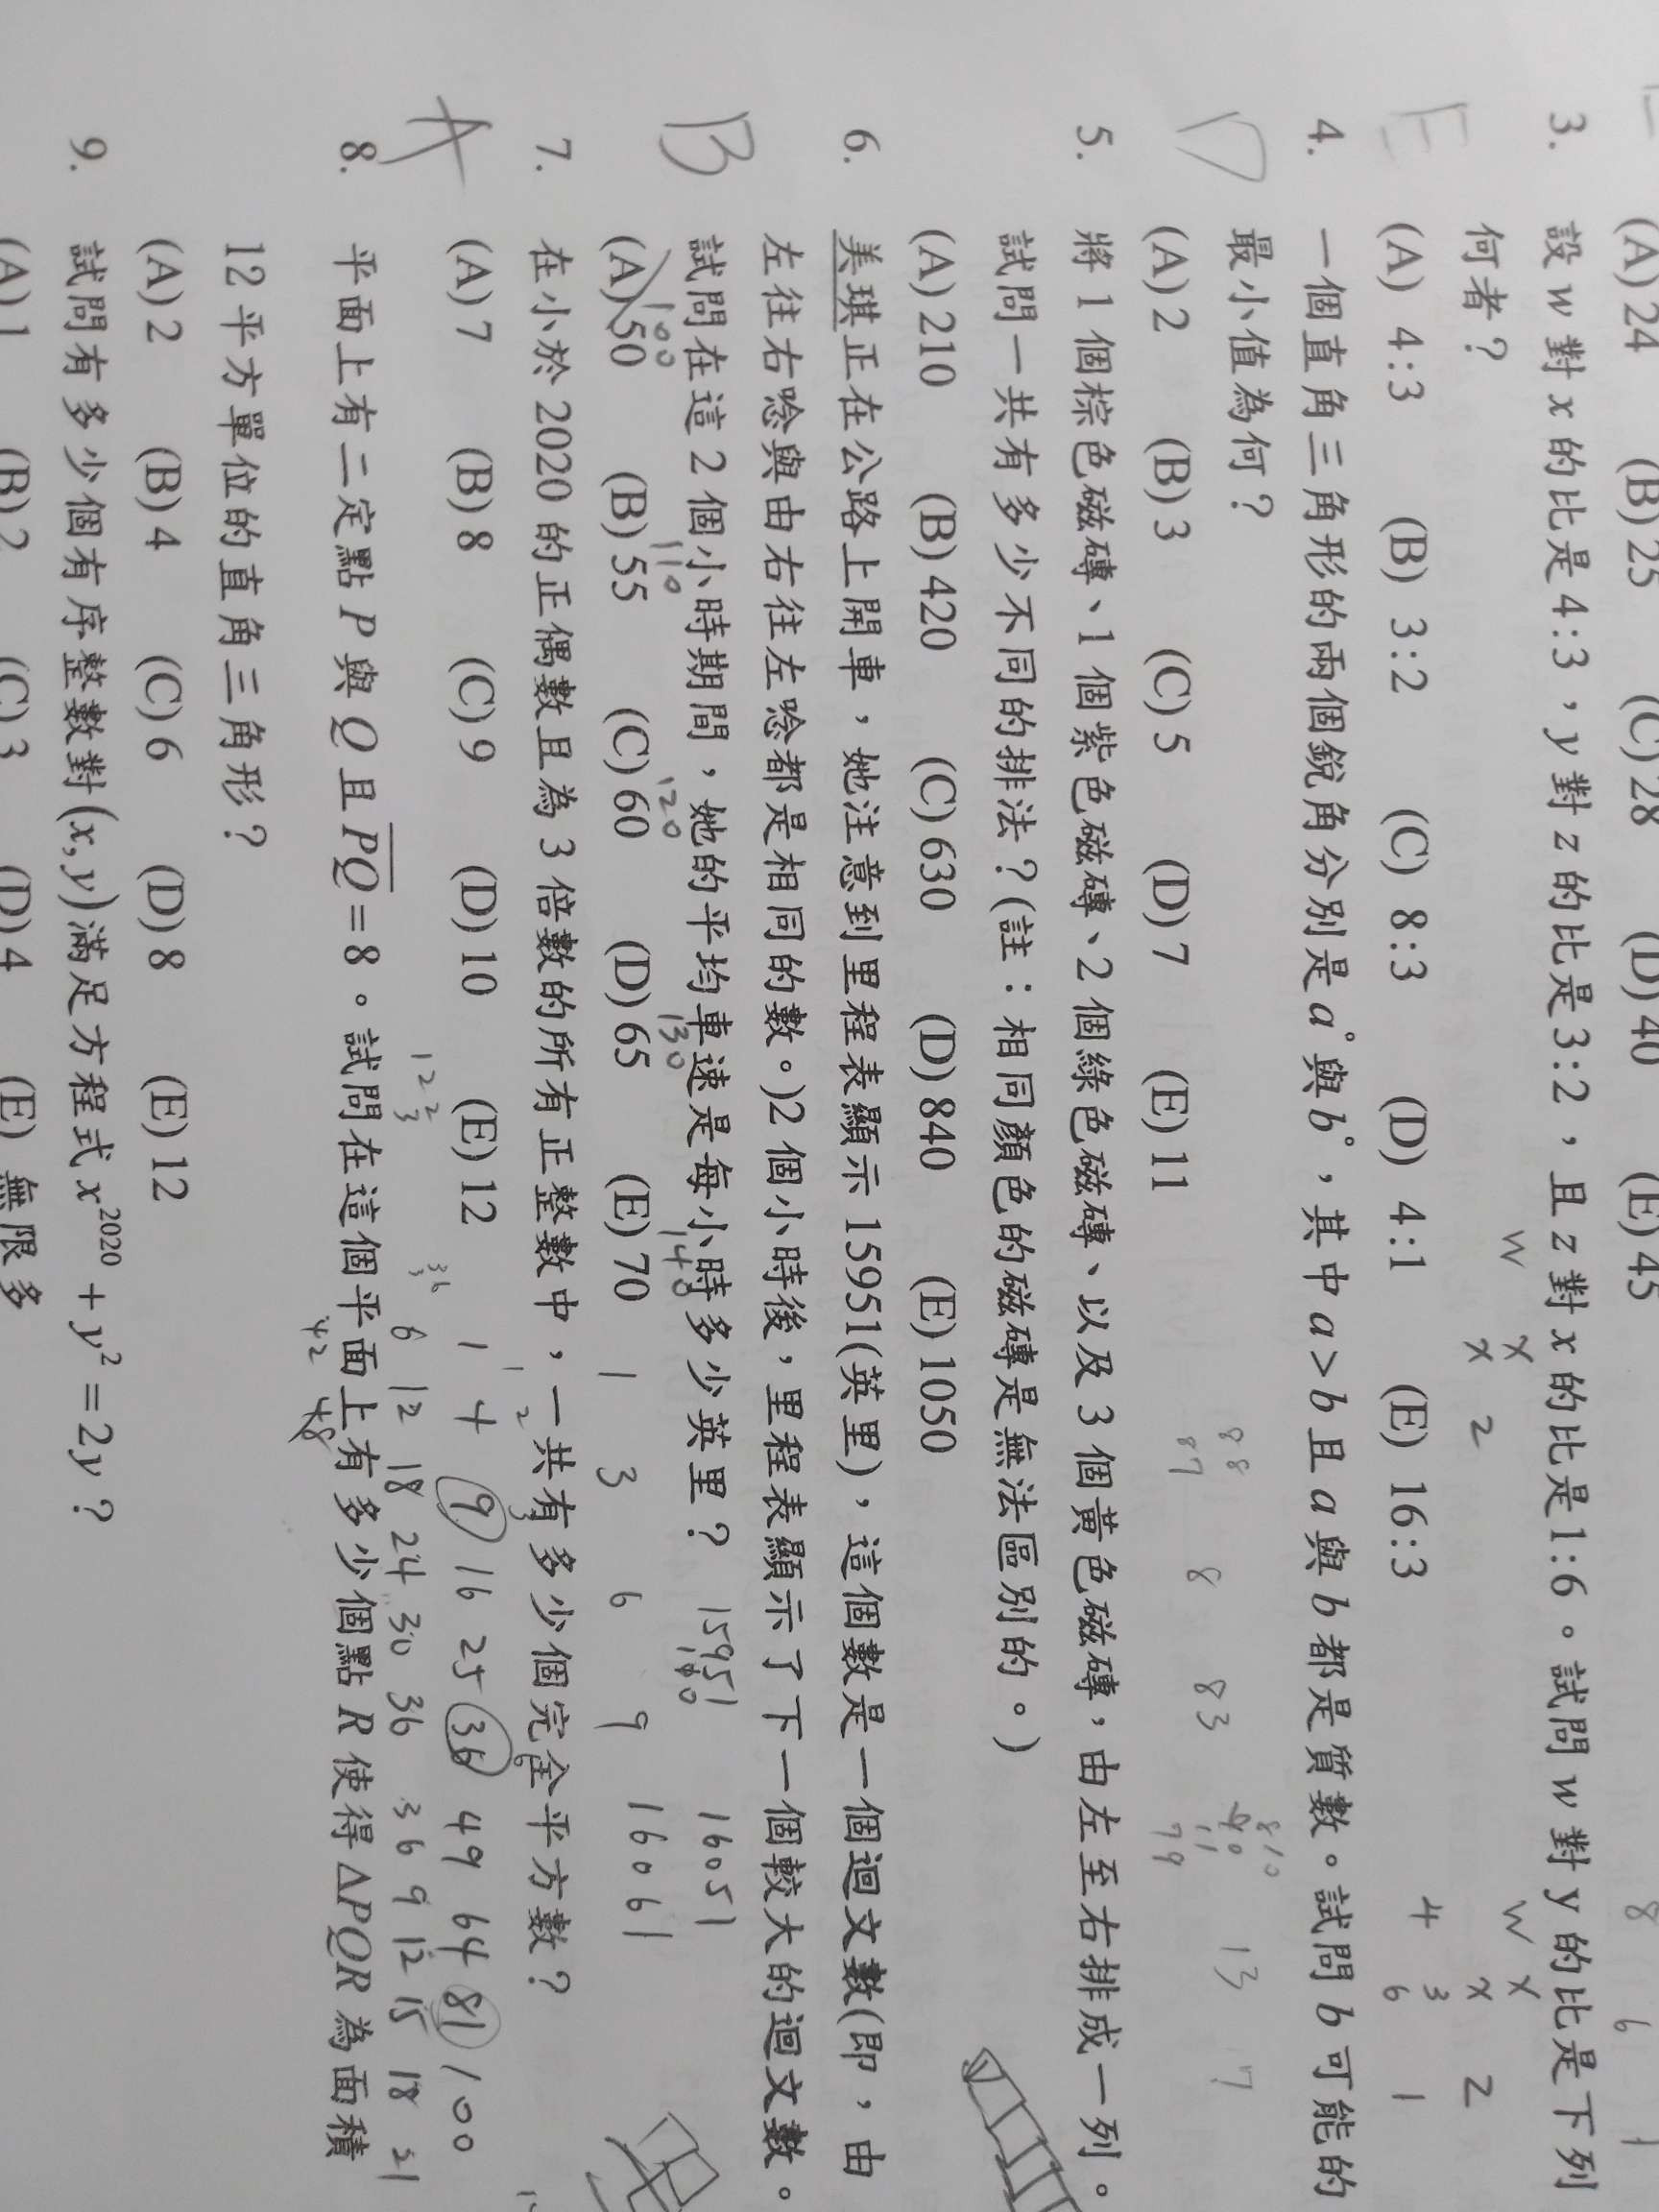 (A) 24 (B) 25 (C) 28 (D) 40 (E) 45
8 6 1
3. 設 w 對 x 的比是 4:3，y 對 z 的比是 3:2，且 z 對 x 的比是 1:6。試問 w 對 y 的比是下列
何者？
W X
X Z
W X
X Z
(A) 4:3 (B) 3:2 (C) 8:3 (D) 4:1 (E) 16:3
4 3
6 1
E
4. 一個直角三角形的兩個銳角分別是 a° 與 b°，其中 a > b 且 a 與 b 都是質數。試問 b 可能的
最小值為何？
88
87
8
83
79
13
17
(A) 2 (B) 3 (C) 5 (D) 7 (E) 11
D
5. 將 1 個棕色磁磚、1 個紫色磁磚、2 個綠色磁磚、以及 3 個黃色磁磚，由左至右排成一列。
試問一共有多少不同的排法？(註：相同顏色的磁磚是無法區別的。)
(A) 210 (B) 420 (C) 630 (D) 840 (E) 1050
6. 美琪正在公路上開車，她注意到里程表顯示 15951(英里)，這個數是一個迴文數(即，由
左往右唸與由右往左唸都是相同的數。)2 個小時後，里程表顯示了下一個較大的迴文數。
試問在這 2 個小時期間，她的平均車速是每小時多少英里？
15951
16051
B
100 110 120 130 140
(A) 50 (B) 55 (C) 60 (D) 65 (E) 70
1 3 6 9
16061
7. 在小於 2020 的正偶數且為 3 倍數的所有正整數中，一共有多少個完全平方數？
1 2 3 6
(A) 7 (B) 8 (C) 9 (D) 10 (E) 12
1 4 9 16 25 36 49 64 81 100
A
12 2 3
36
3
6 12 18 24 30 36 3 6 9 12 15 18 21
42 48
8. 平面上有二定點 P 與 Q 且 PQ = 8。試問在這個平面上有多少個點 R 使得 ΔPQR 為面積
12 平方單位的直角三角形？
(A) 2 (B) 4 (C) 6 (D) 8 (E) 12
9. 試問有多少個有序整數對 (x, y) 滿足方程式 x²⁰²⁰ + y² = 2y？
(A) 1 (B) 2 (C) 3 (D) 4 (E) 無限多